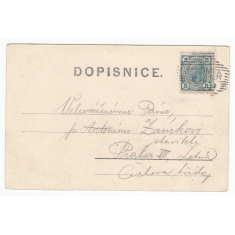 DOPISNICE.
Veleváženému Pánu,
p. Antonínu Zámkovi
stavitel
Praha VII. Letná
Čechova třída